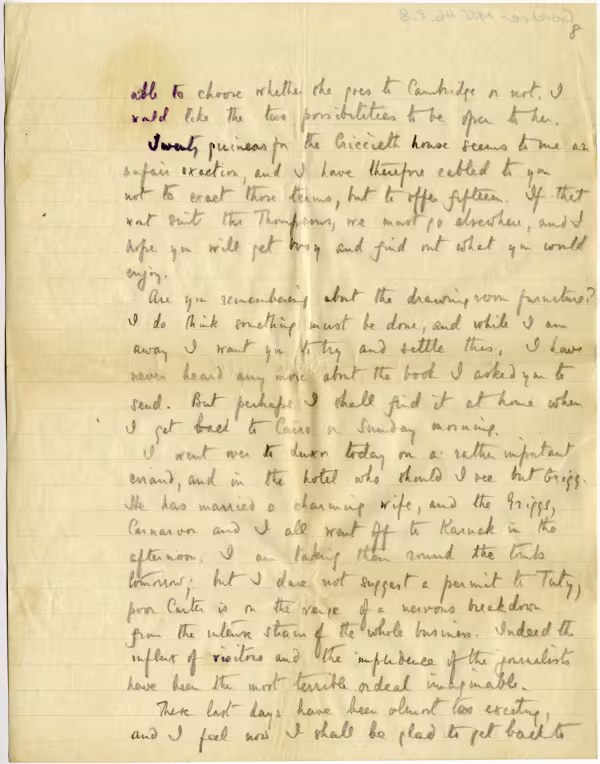 Gardiner MSS 46.8.8
8
able to choose whether she goes to Cambridge or not. I
would like the two possibilities to be open to her.
Twenty guineas for the Criccieth house seems to me an
unfair exaction, and I have therefore cabled to you
not to exact those terms, but to offer fifteen. If that
wont suit the Thompsons, we must go elsewhere, and I
hope you will get busy and find out what you would
enjoy.
Are you remembering about the drawing room furniture?
I do think something must be done, and while I am
away I want you to try and settle this. I have
never heard any more about the book I asked you to
send. But perhaps I shall find it at home when
I get back to Cairo on Sunday morning.
I went over to Luxor today on a rather important
errand, and in the hotel who should I see but Grigg.
He has married a charming wife, and the Griggs,
Carnarvon and I all went off to Karnak in the
afternoon. I am taking them round the tombs
tomorrow; but I dare not suggest a permit to Tuty,
poor Carter is on the verge of a nervous breakdown
from the intense strain of the whole business. Indeed the
influx of visitors and the impudence of the journalists
have been the most terrible ordeal imaginable.
These last days have been almost too exciting,
and I feel now I shall be glad to get back to